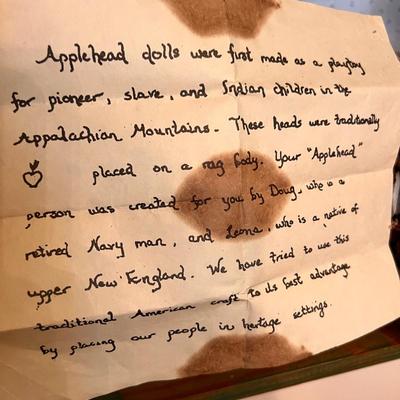 Applehead dolls were first made as a plaything
for pioneer, slave, and Indian children in the
Appalachian Mountains. These heads were traditionally
placed on a rag body. Your "Applehead"
person was created for you by Doug, who is a
retired Navy man, and Leona, who is a native of
upper New England. We have tried to use this
traditional American craft to its best advantage
by placing our people in heritage settings.